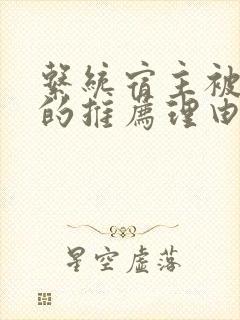 繫統宿主被
的推薦理由
星空虛落